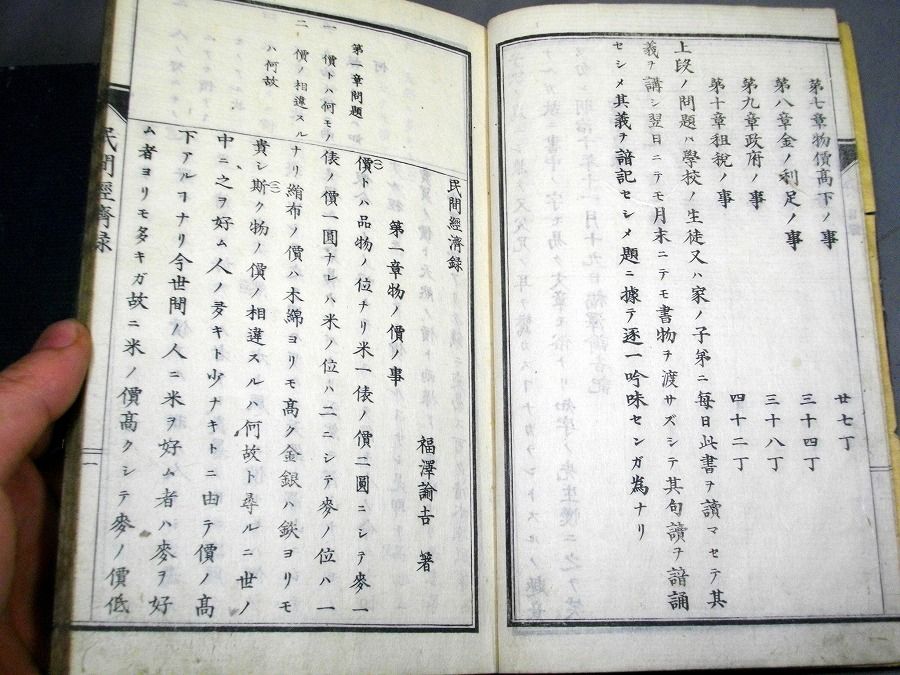 第七章物價高下ノ事　廿七丁
第八章金ノ利足ノ事　三十四丁
第九章政府ノ事　三十八丁
第十章租税ノ事　四十二丁
上段ノ問題ハ學校ノ生徒又ハ家ノ子弟ニ毎日此書ヲ讀マセテ其
義ヲ講シ翌日ニテモ月末ニテモ書物ヲ渡サズシテ其句讀ヲ諳誦
セシメ其義ヲ諳記セシメ題ニ據テ逐一吟味センガ爲ナリ
民間經濟録
福澤諭吉　著
第一章物ノ價ノ事
(一)價トハ品物ノ位ナリ米一俵ノ價二圓ニシテ麥一
俵ノ價一圓ナレハ米ノ位ハ二ニシテ麥ノ位ハ一
ナリ絹布ノ價ハ木綿ヨリモ高ク金銀ハ鉄ヨリモ
貴シ(二)斯ク物ノ價ノ相違スルハ何故ト尋ルニ世ノ
中ニ之ヲ好ム人ノ多キト少ナキトニ由テ價ノ高
下アルヿナリ今世間ノ人ニ米ヲ好ム者ハ麥ヲ好
ム者ヨリモ多キガ故ニ米ノ價高クシテ麥ノ價低
第一章問題
一　價トハ何モノ
二　價ノ相違スル
ハ何故
民間經濟録
一